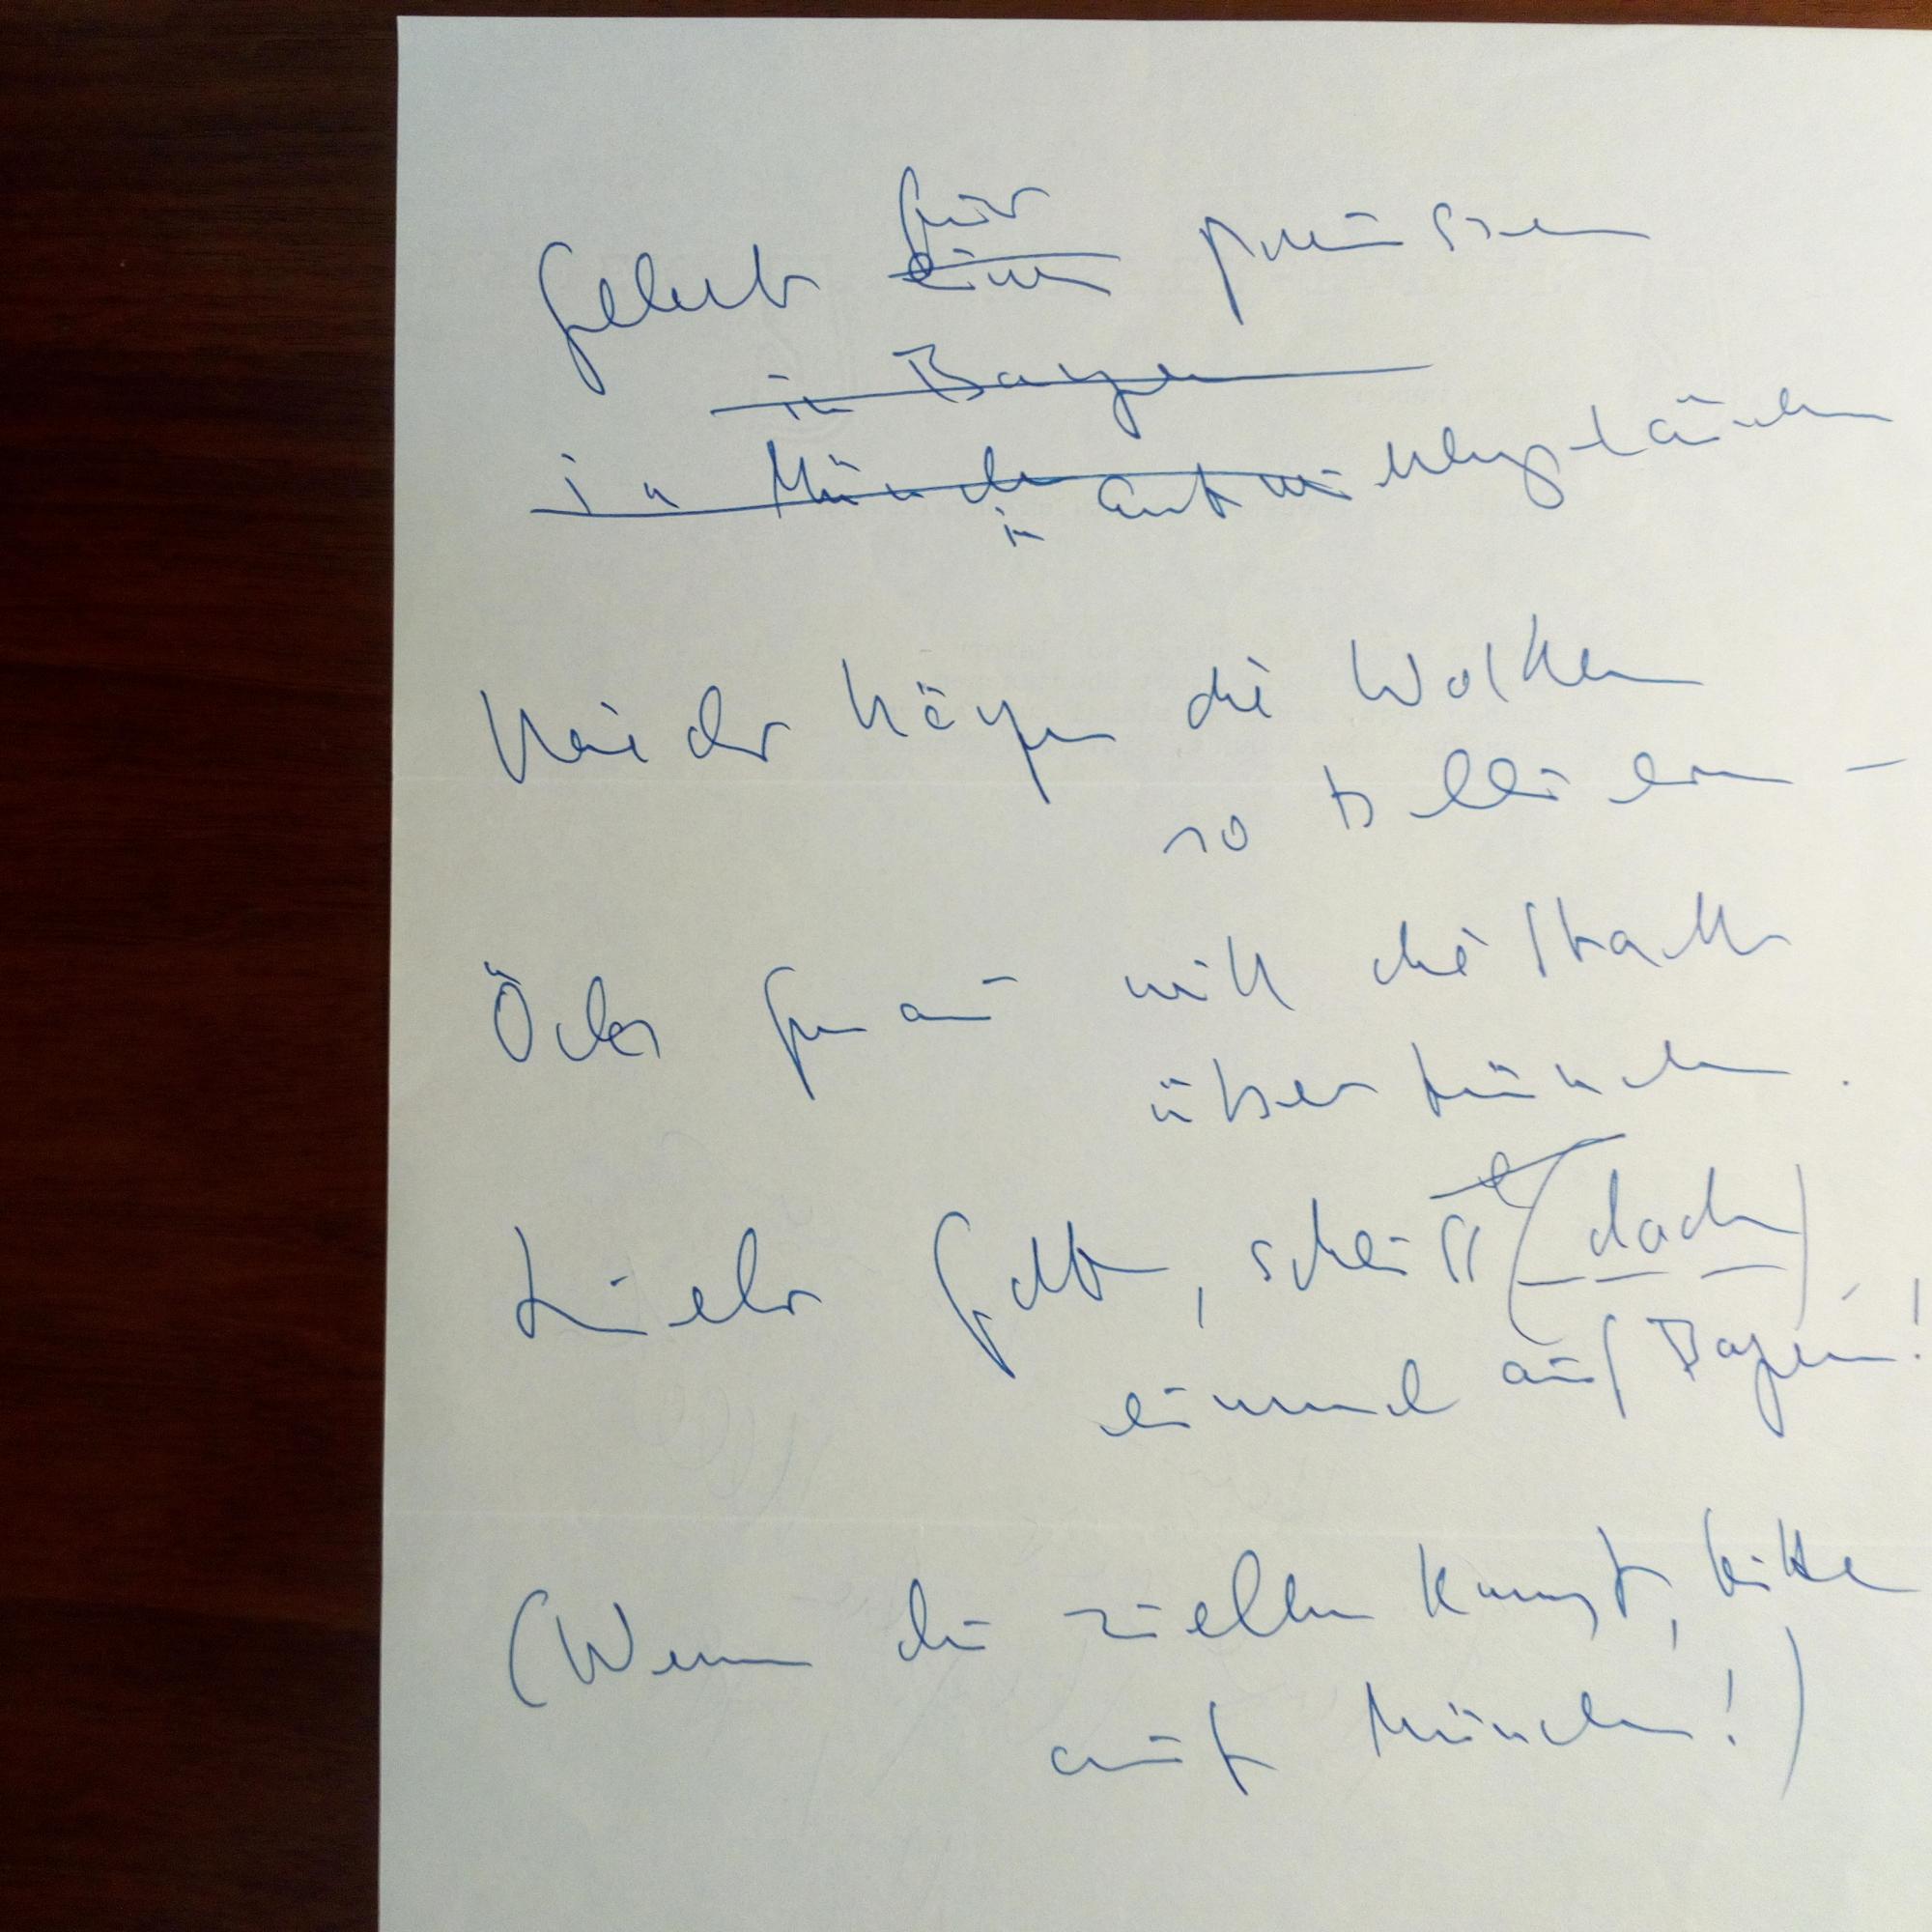 für
Gebet einen preussen
in Bayern
in München entwicklungsländern
in
Nieder hängen die Wolken
so bleiern –
Ödes grau will die Stadt
übertünchen.
Lieber Gott, scheiss (doch)
einmal auf Bayern!
(Wenn du zielen kannst, bitte
auf München!)